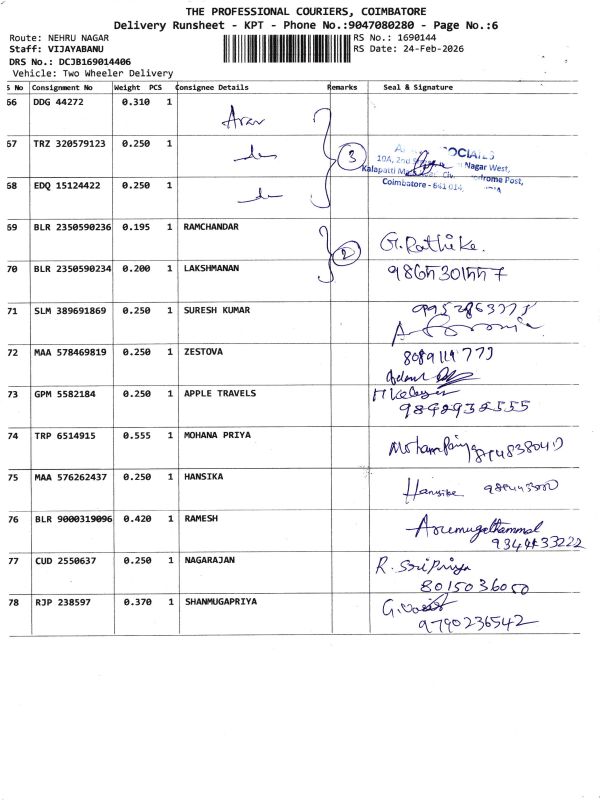 THE PROFESSIONAL COURIERS, COIMBATORE
Delivery Runsheet - KPT - Phone No.:9047080280 - Page No.:6
Route: NEHRU NAGAR RS No.: 1690144
Staff: VIJAYABANU RS Date: 24-Feb-2026
DRS No.: DCJB169014406
Vehicle: Two Wheeler Delivery
S No Consignment No Weight PCS Consignee Details Remarks Seal & Signature
66 DDG 44272 0.310 1
67 TRZ 320579123 0.250 1 3
10A, 2nd Nagar West,
Kalapatti Civ Aerodrome Post,
Coimbatore - 641 014,
68 EDQ 15124422 0.250 1
69 BLR 2350590236 0.195 1 RAMCHANDAR 2 G. Rathika.
70 BLR 2350590234 0.200 1 LAKSHMANAN
71 SLM 389691869 0.250 1 SURESH KUMAR
72 MAA 578469819 0.250 1 ZESTOVA
73 GPM 5582184 0.250 1 APPLE TRAVELS
9842932555
74 TRP 6514915 0.555 1 MOHANA PRIYA
75 MAA 576262437 0.250 1 HANSIKA Hansika
76 BLR 9000319096 0.420 1 RAMESH Arumugathammal
9344433222
77 CUD 2550637 0.250 1 NAGARAJAN R. Sri Priya
8015036050
78 RJP 238597 0.370 1 SHANMUGAPRIYA
9790236542